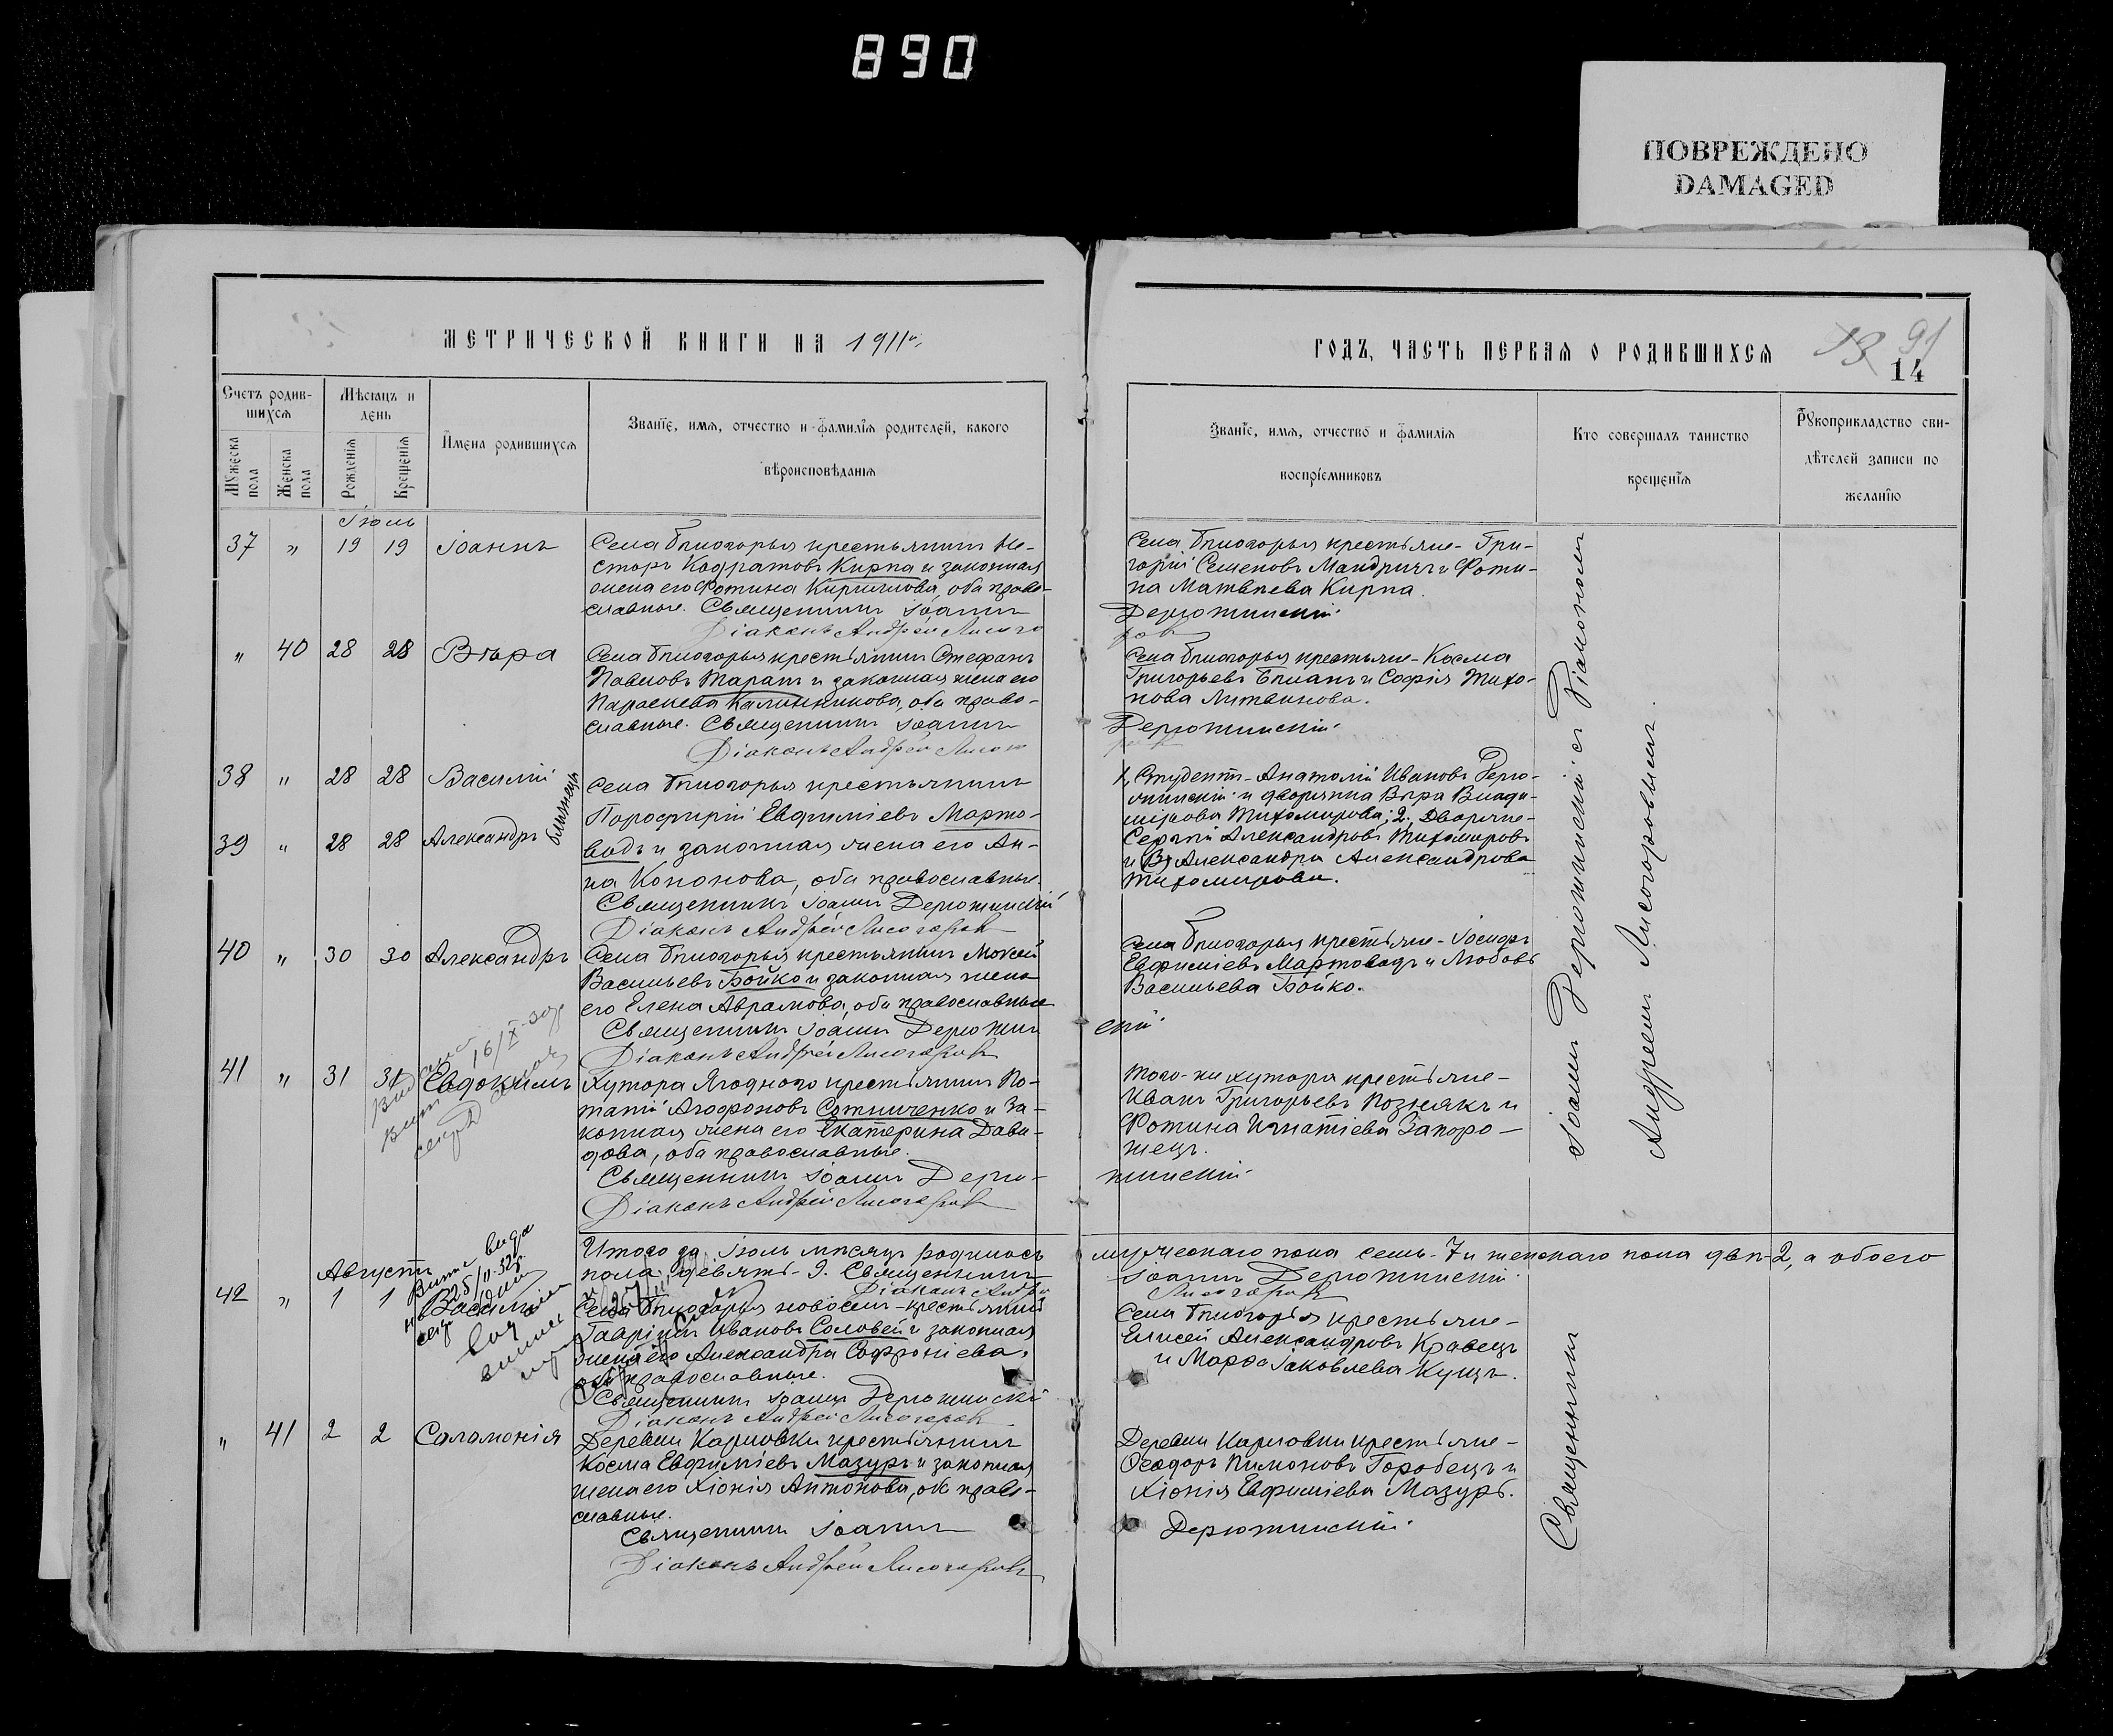 890
ПОВРЕЖДЕНО
DAMAGED
МЕТРИЧЕСКОЙ КНИГИ НА 1911 г.
Счетъ родив-
шихся
Мѣсяцъ и
день
Имена родившихся
Званіе, имя, отчество и фамилія родителей, какого
вѣроисповѣданія
Мужеска
пола
Женска
пола
Рожденія
Крещенія
Іюль
37 " 19 19 Іоаннъ
Села Бѣлогорья крестьянинъ Не-
сторъ Кодратовъ Кирпа и законная
жена его Фотина Кириллова, оба право-
славные. Священникъ Іоаннъ
Діаконъ Андрей Лисого
" 40 28 28 Вѣра
Села Бѣлогорья крестьянинъ Стефанъ
Павловъ Таранъ и законная жена его
Параскева Калинникова, оба право-
славные. Священникъ Іоаннъ
Діаконъ Андрей Лисого
38 " 28 28 Василій
близнецы
39 " 28 28 Александръ
Села Бѣлогорья крестьянинъ
Порфирій Евфиміевъ Марто-
водъ и законная жена его Ан-
на Кононова, оба православные.
Священникъ Іоаннъ Дерюжинскій
Діаконъ Андрей Лисогоровъ
40 " 30 30 Александръ
Села Бѣлогорья крестьянинъ Мокей
Васильевъ Бойко и законная жена
его Елена Аврамова, оба православные
Священникъ Іоаннъ Дерюжин
Діаконъ Андрей Лисогоровъ
16/X
41 " 31 31 Евдокимъ
Хутора Ягоднаго крестьянинъ По-
тапій Агафоновъ Сотниченко и за-
конная жена его Екатерина Дави-
дова, оба православные.
Священникъ Іоаннъ Дерю-
Діаконъ Андрей Лисогоровъ
Итого за Іюль мѣсяцъ родилось
пола девять - 9. Священникъ
Діаконъ Андрей
Августъ
25/II-32
42 " 1 1 Василій
Села Бѣлогорья новосел-крестьянинъ
Гавріилъ Ивановъ Соловей и законная
жена его Александра Софроніева,
оба православные.
Священникъ Іоаннъ Дерюжинскій
Діаконъ Андрей Лисогоровъ
" 41 2 2 Саломонія
Деревни Карловки крестьянинъ
Косма Евфиміевъ Мазуръ и законная
жена его Хіонія Антонова, оба право-
славные.
Священникъ Іоаннъ
Діаконъ Андрей Лисогоровъ
ГОДЪ, ЧАСТЬ ПЕРВАЯ О РОДИВШИХСЯ
13 91
14
Званіе, имя, отчество и фамилія
воспріемниковъ
Кто совершалъ таинство
крещенія
Рукоприкладство сви-
дѣтелей записи по
желанію
Села Бѣлогорья крестьяне - Гри-
горій Семеновъ Мандричъ и Фоти-
на Матвѣева Кирпа.
Дерюжинскій.
ровъ
Села Бѣлогорья крестьяне - Косма
Григорьевъ Бѣланъ и Софія Тихо-
нова Литвинова.
Дерюжинскій.
ровъ
1, Студентъ - Анатолій Ивановъ Дерю-
жинскій и дворянка Вѣра Влади-
мірова Тихомирова; 2, Дворяне -
Сергѣй Александровъ Тихомировъ
и Александра Александрова
Тихомирова.
Села Бѣлогорья крестьяне - Іосифъ
Евфиміевъ Мартоводъ и Любовь
Васильева Бойко.
скій.
Того-же хутора крестьяне -
Иванъ Григорьевъ Познякъ и
Фотина Игнатіева Запоро-
жецъ.
жинскій.
мужескаго пола семь - 7 и женскаго пола двѣ - 2, а обоего
Іоаннъ Дерюжинскій.
Лисогоровъ
Села Бѣлогорья крестьяне -
Елисей Александровъ Кравецъ
и Марфа Іаковлева Куцъ.
Деревни Карловки крестьяне -
Ѳеодоръ Пимоновъ Горобецъ и
Хіонія Евфиміева Мазуръ.
Дерюжинскій.
Священникъ Іоаннъ Дерюжинскій съ Діакономъ
Андреемъ Лисогоровымъ.